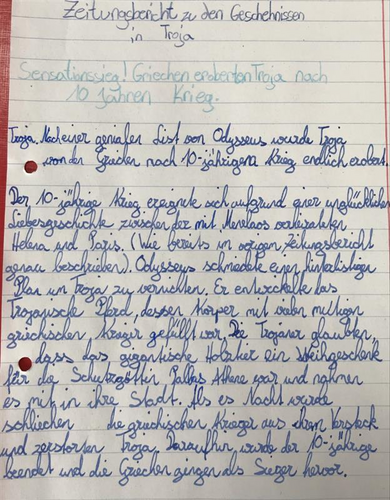 Zeitungsbericht zu den Geschehnissen
in Troja
Sensationssieg! Griechen eroberten Troja nach
10 Jahren Krieg.
Troja. Nach einer genialen List von Odysseus wurde Troja
von der Griechen nach 10-jährigen Krieg endlich erobert.
Der 10-jährige Krieg ereignete sich aufgrund einer unglücklichen
Liebesgeschichte zwischen der mit Menelaos verheirateten
Helena und Paris. (Wie bereits in vorigen Zeitungsbericht
genau beschrieben). Odysseus schmiedete einen hinterlistigen
Plan um Troja zu vernichten. Er entwickelte das
Trojanische Pferd, dessen Körper mit vielen mutigen
griechischen Krieger gefüllt war. Die Trojaner glaubten,
dass das gigantische Holztier ein Weihgeschenk
für die Schutzgöttin Pallas Athene war und nahmen
es mit in ihre Stadt. Als es Nacht wurde
schliechen die griechischen Krieger aus ihrem Versteck
und zerstörten Troja. Daraufhin wurde der 10-jährige
beendet und die Griechen gingen als Sieger hervor.